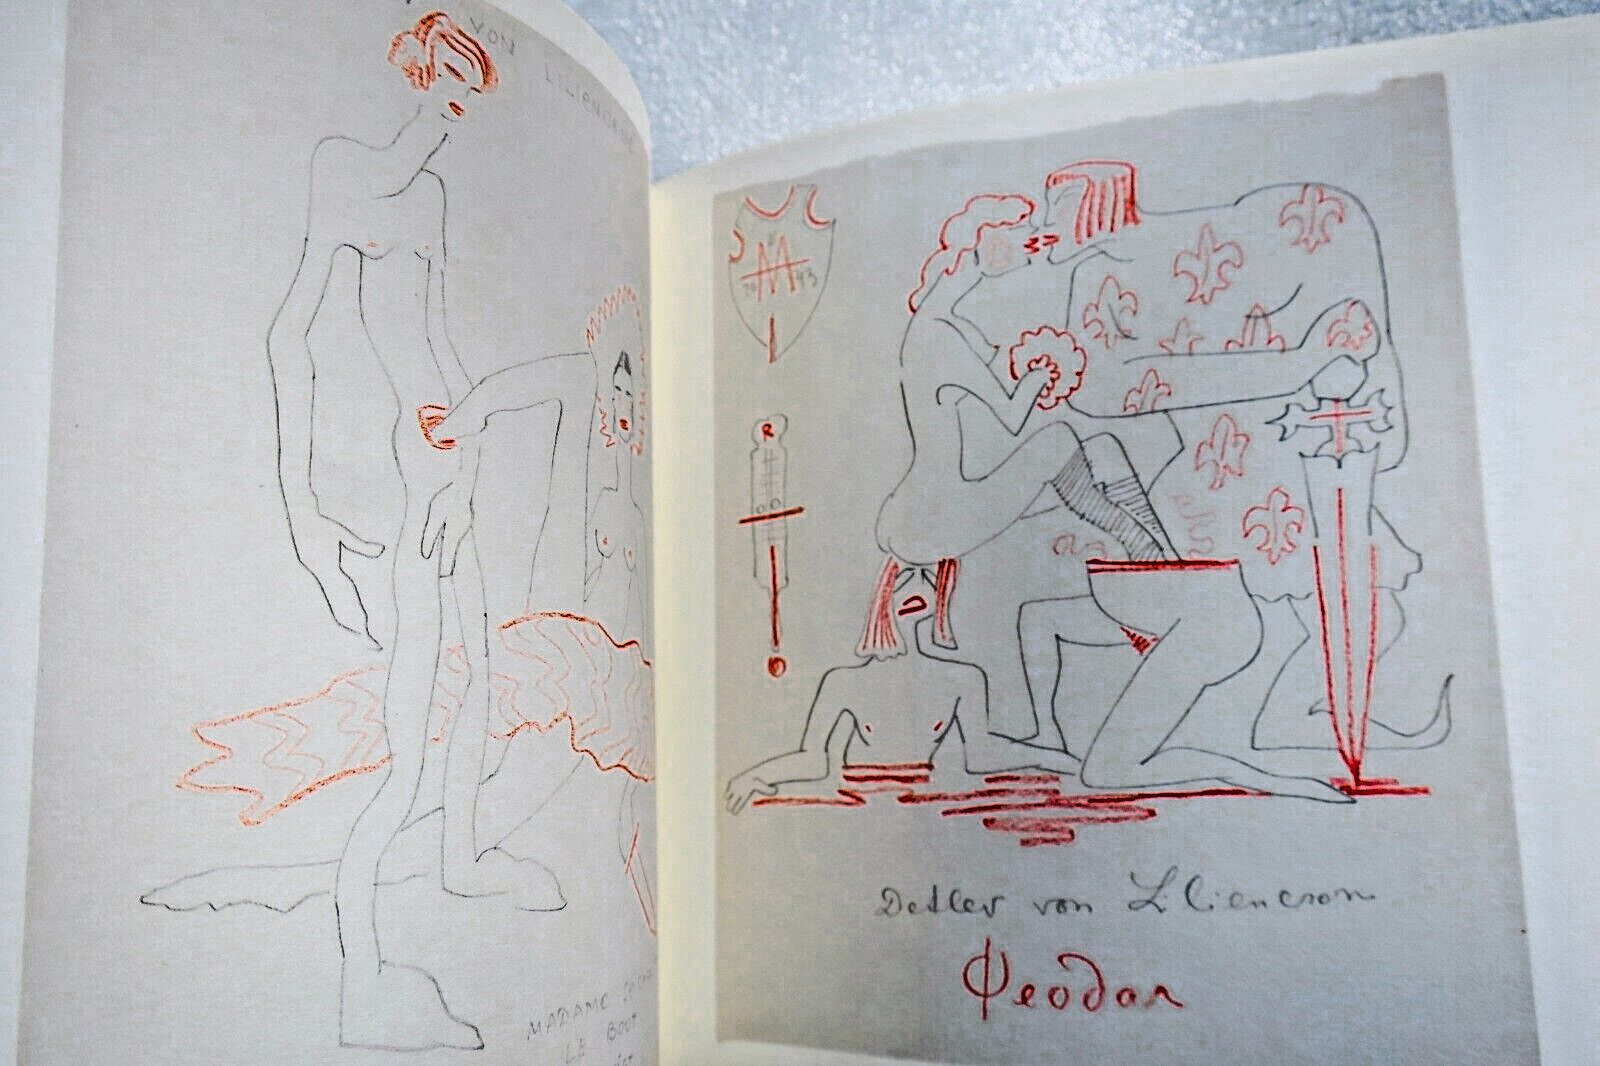 VON
LILIENCRON
MADAME
LE BOOT
M
20 43
R
Detlev von Liliencron
Ψeodor